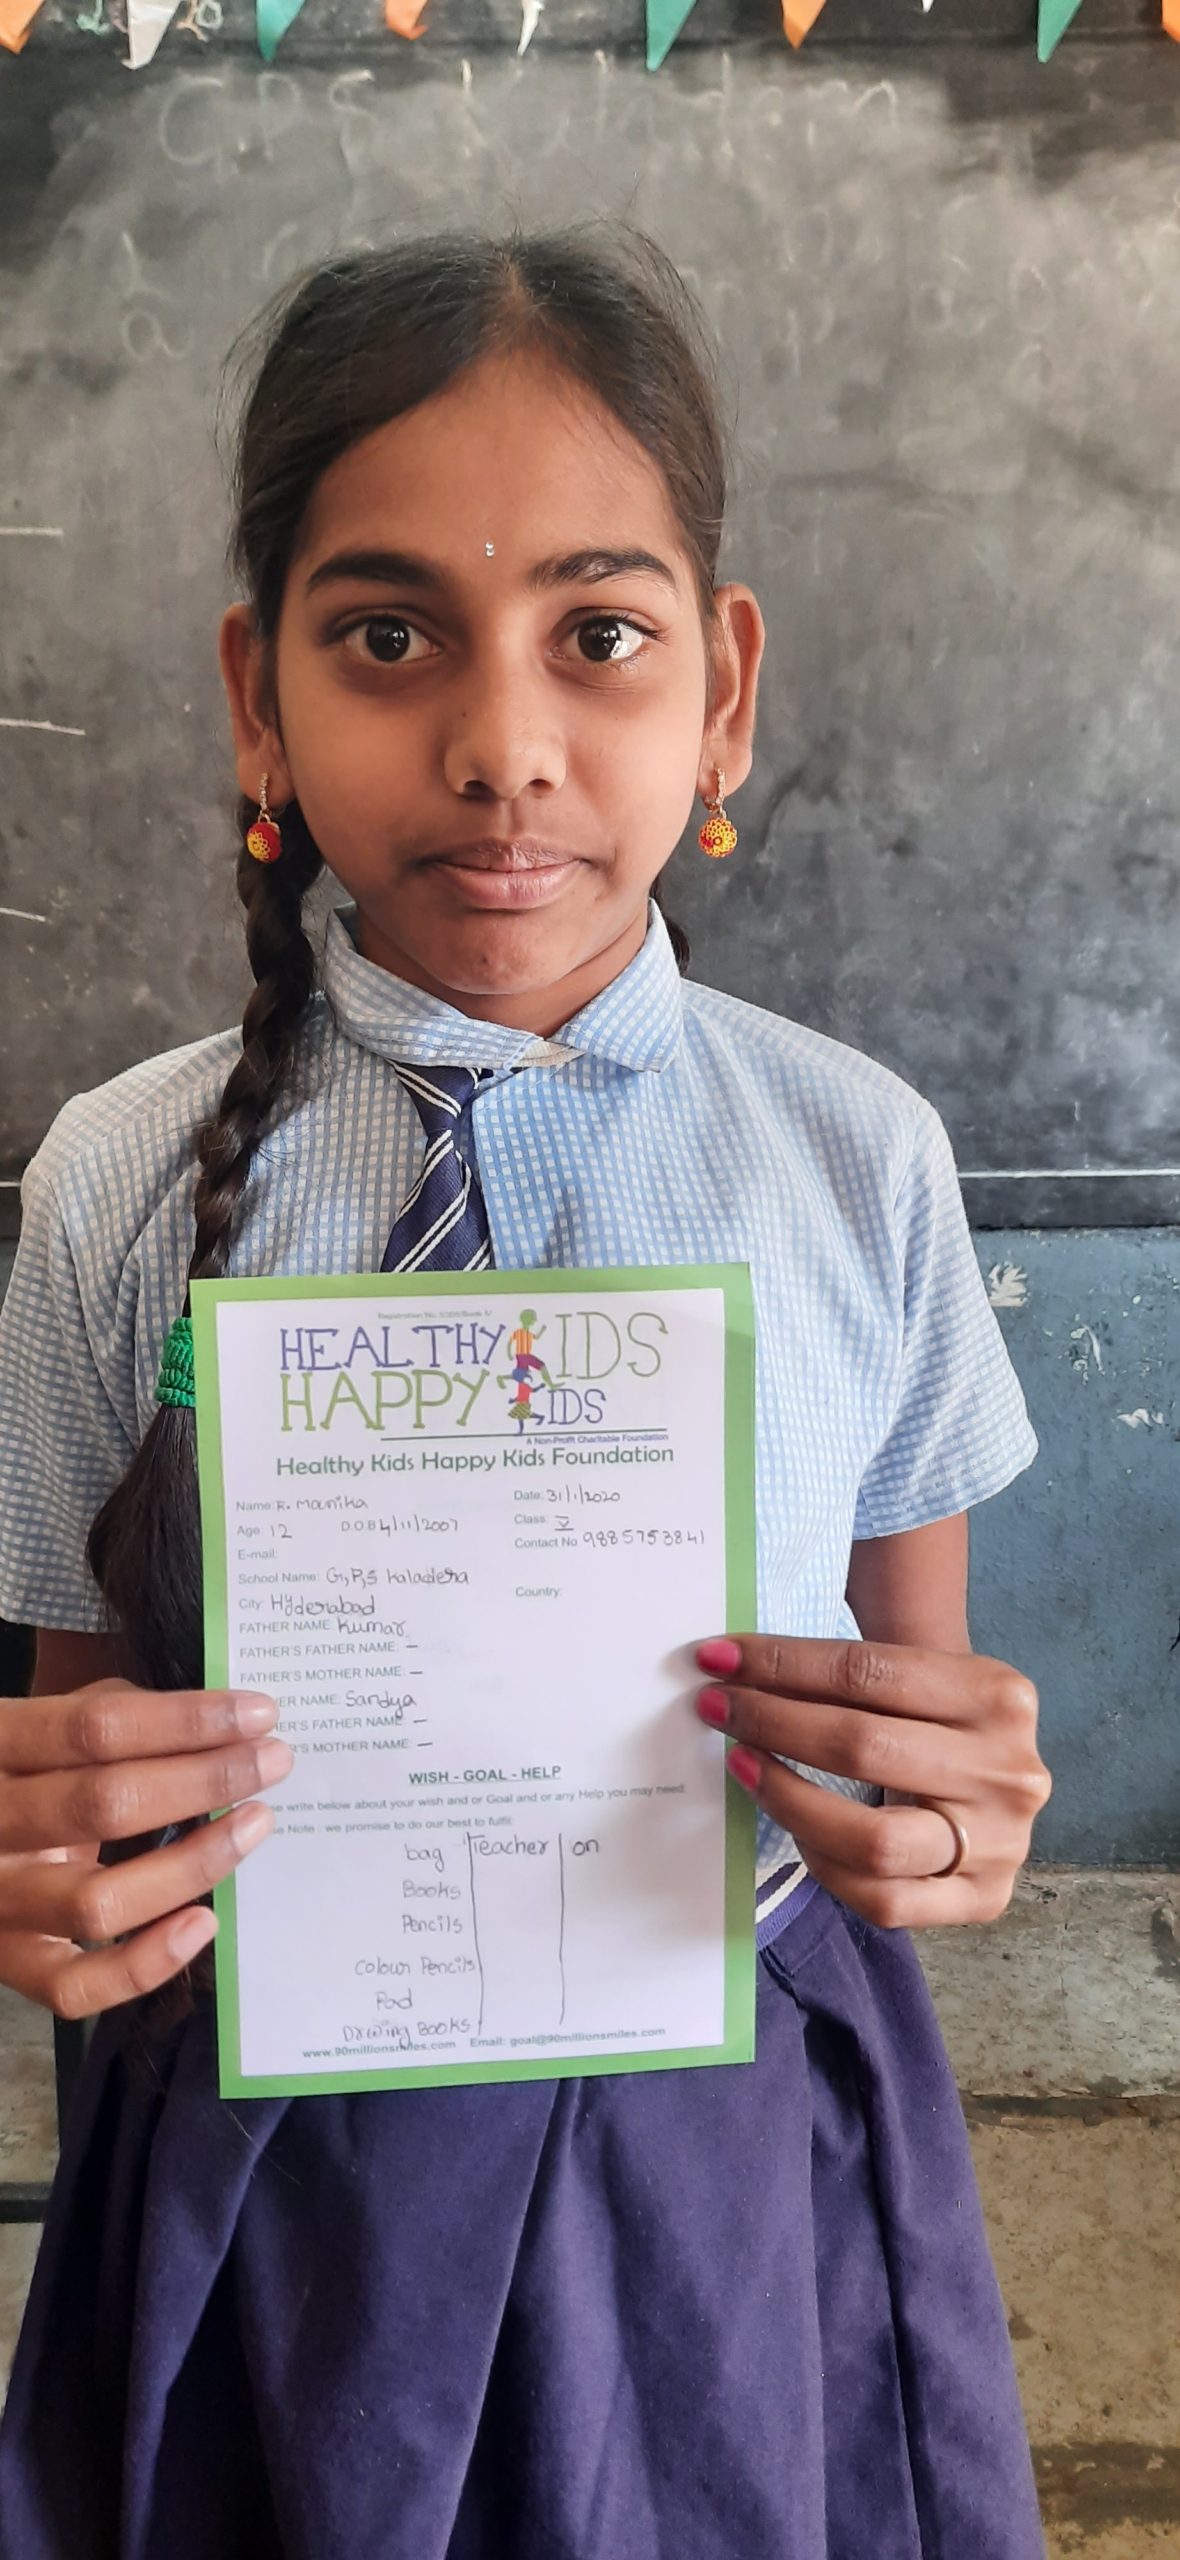 G.P.S Kaladera
Registration No.
HEALTHY KIDS
HAPPY KIDS
A Non-Profit Charitable Foundation
Healthy Kids Happy Kids Foundation
Name: R. Mounika Date: 31/1/2020
Age: 12 D.O.B 4/11/2007 Class: V
E-mail: Contact No 9885753841
School Name: G,P,S Kaladera
City: Hyderabad Country:
FATHER NAME: Kumar.
FATHER'S FATHER NAME: —
FATHER'S MOTHER NAME: —
ER NAME: Sandya
ER'S FATHER NAME —
R'S MOTHER NAME: —
WISH - GOAL - HELP
se write below about your wish and or Goal and or any Help you may need:
se Note : we promise to do our best to fulfil:
bag | Teacher | on
Books
Pencils
Colour Pencils
Pad
Drwing Books
www.90millionsmiles.com Email: goal@90millionsmiles.com